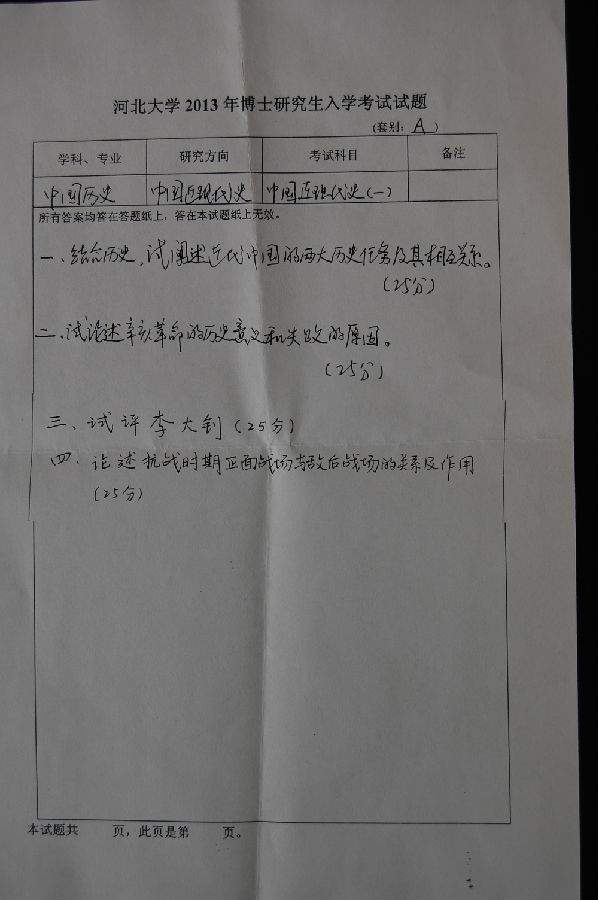 河北大学 2013 年博士研究生入学考试试题
(套别: A )
学科、专业 研究方向 考试科目 备注
中国历史 中国近现代史 中国近现代史(一)
所有答案均答在答题纸上，答在本试题纸上无效。
一、结合历史，试阐述近代中国的两大历史任务及其相互关系。
(25分)
二、试论述辛亥革命的历史意义和失败的原因。
(25分)
三、试评李大钊(25分)
四、论述抗战时期正面战场与敌后战场的关系及作用
(25分)
本试题共 页，此页是第 页。